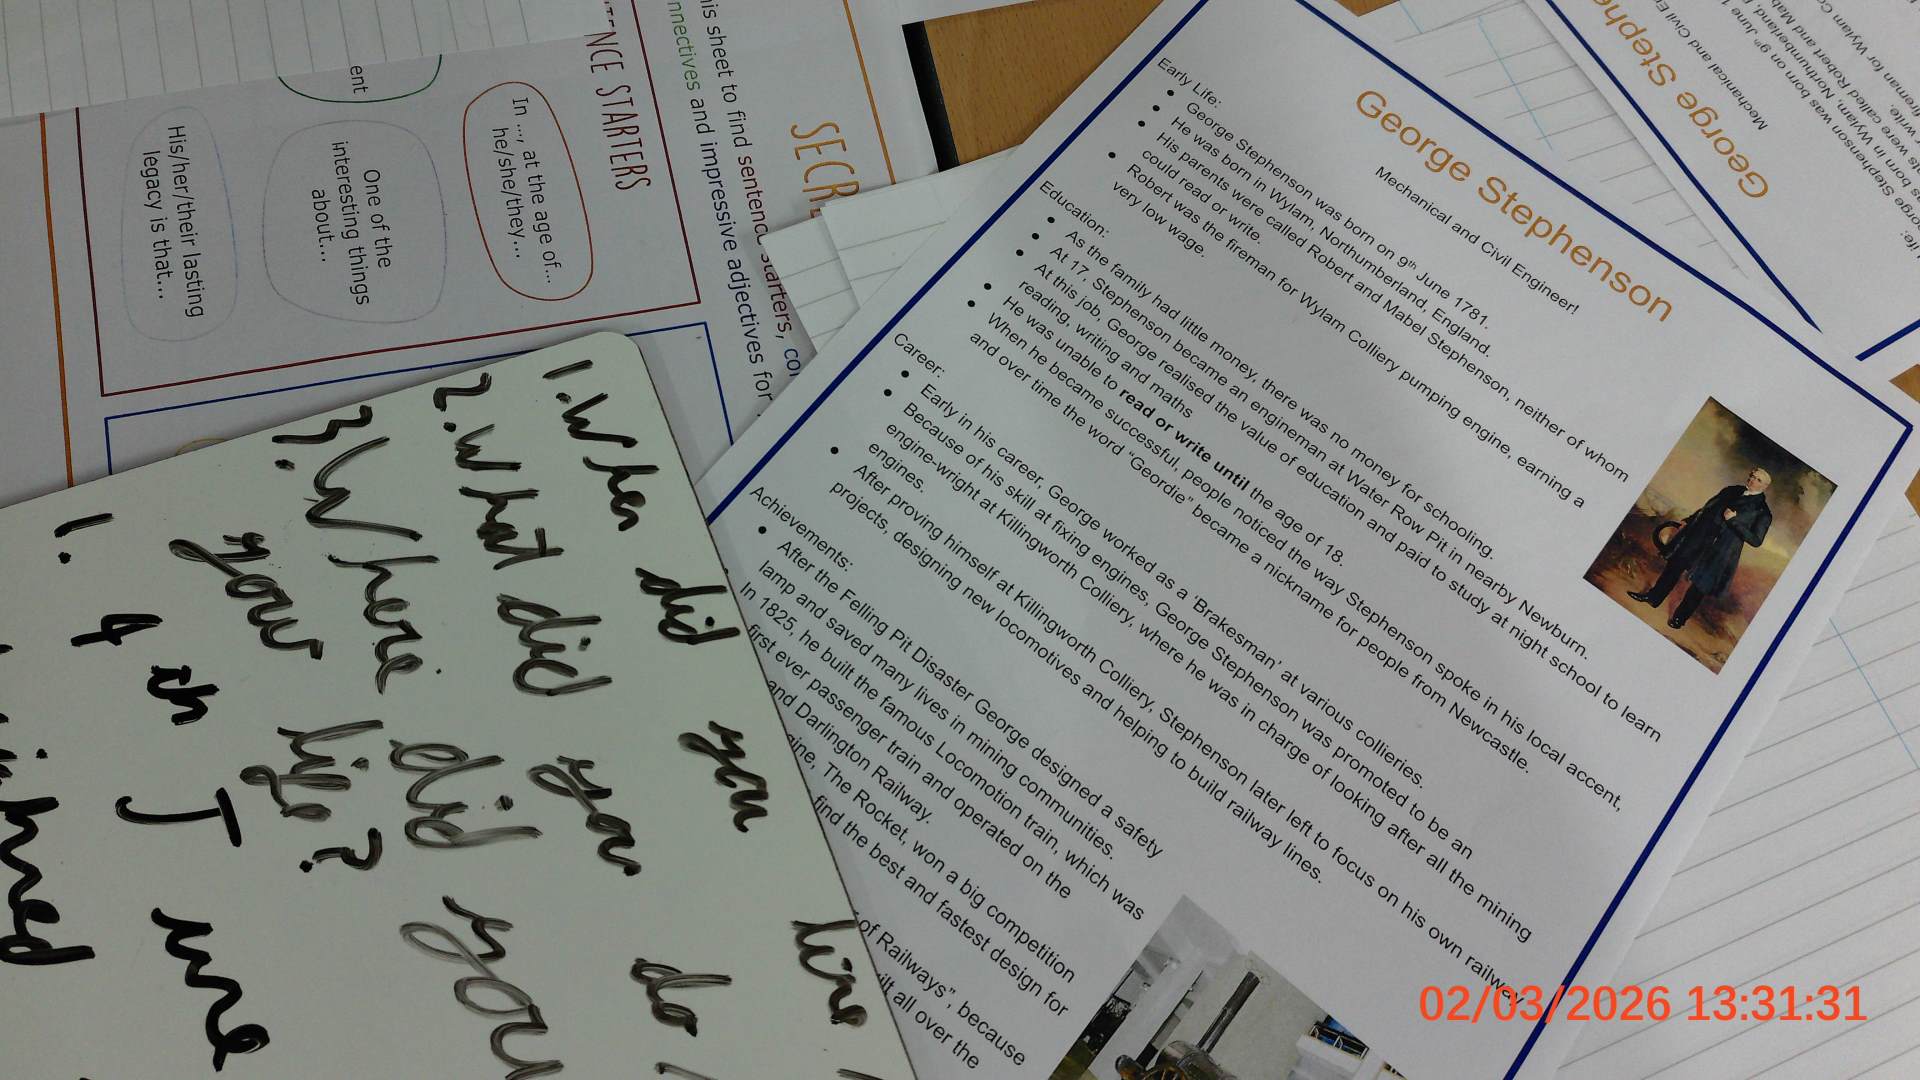 George Stephenson
Mechanical and Civil Engineer!
Early Life:
George Stephenson was born on 9th June 1781.
He was born in Wylam, Northumberland, England.
His parents were called Robert and Mabel Stephenson, neither of whom
could read or write.
Robert was the fireman for Wylam Colliery pumping engine, earning a
very low wage.
Education:
As the family had little money, there was no money for schooling.
At 17, Stephenson became an engineman at Water Row Pit in nearby Newburn.
At this job, George realised the value of education and paid to study at night school to learn
reading, writing and maths
He was unable to read or write until the age of 18.
When he became successful, people noticed the way Stephenson spoke in his local accent,
and over time the word "Geordie" became a nickname for people from Newcastle.
Career:
Early in his career, George worked as a 'Brakesman' at various collieries.
Because of his skill at fixing engines, George Stephenson was promoted to be an
engine-wright at Killingworth Colliery, where he was in charge of looking after all the mining
engines.
After proving himself at Killingworth Colliery, Stephenson later left to focus on his own railway
projects, designing new locomotives and helping to build railway lines.
Achievements:
After the Felling Pit Disaster George designed a safety
lamp and saved many lives in mining communities.
In 1825, he built the famous Locomotion train, which was
first ever passenger train and operated on the
and Darlington Railway.
The Rocket, won a big competition
find the best and fastest design for
of Railways", because
all over the
SECR
his sheet to find sentence starters, co
nnectives and impressive adjectives for
ENCE STARTERS
In ..., at the age of...
he/she/they...
One of the
interesting things
about...
His/her/their lasting
legacy is that...
ent
1. When did you live
2. What did you do
3. Where did you
your life?
1. 4 th June
George Stephenson
Mechanical and Civil E
02/03/2026 13:31:31